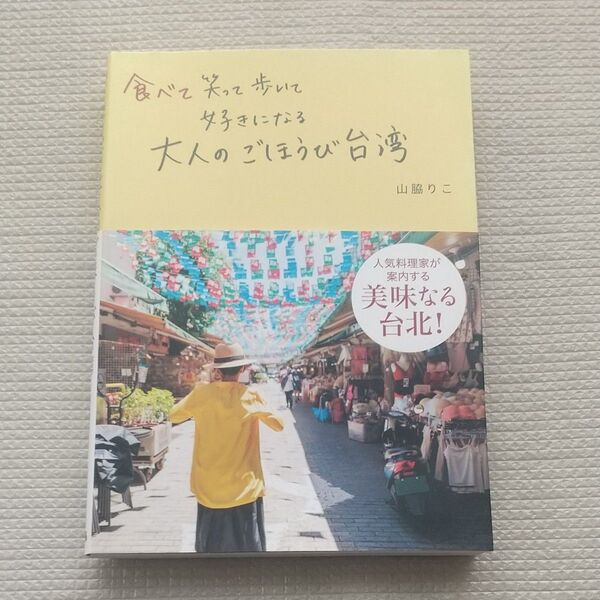 食べて 笑って 歩いて
好きになる
大人の ごほうび 台湾
山脇りこ
人気料理家が
案内する
美味なる
台北!